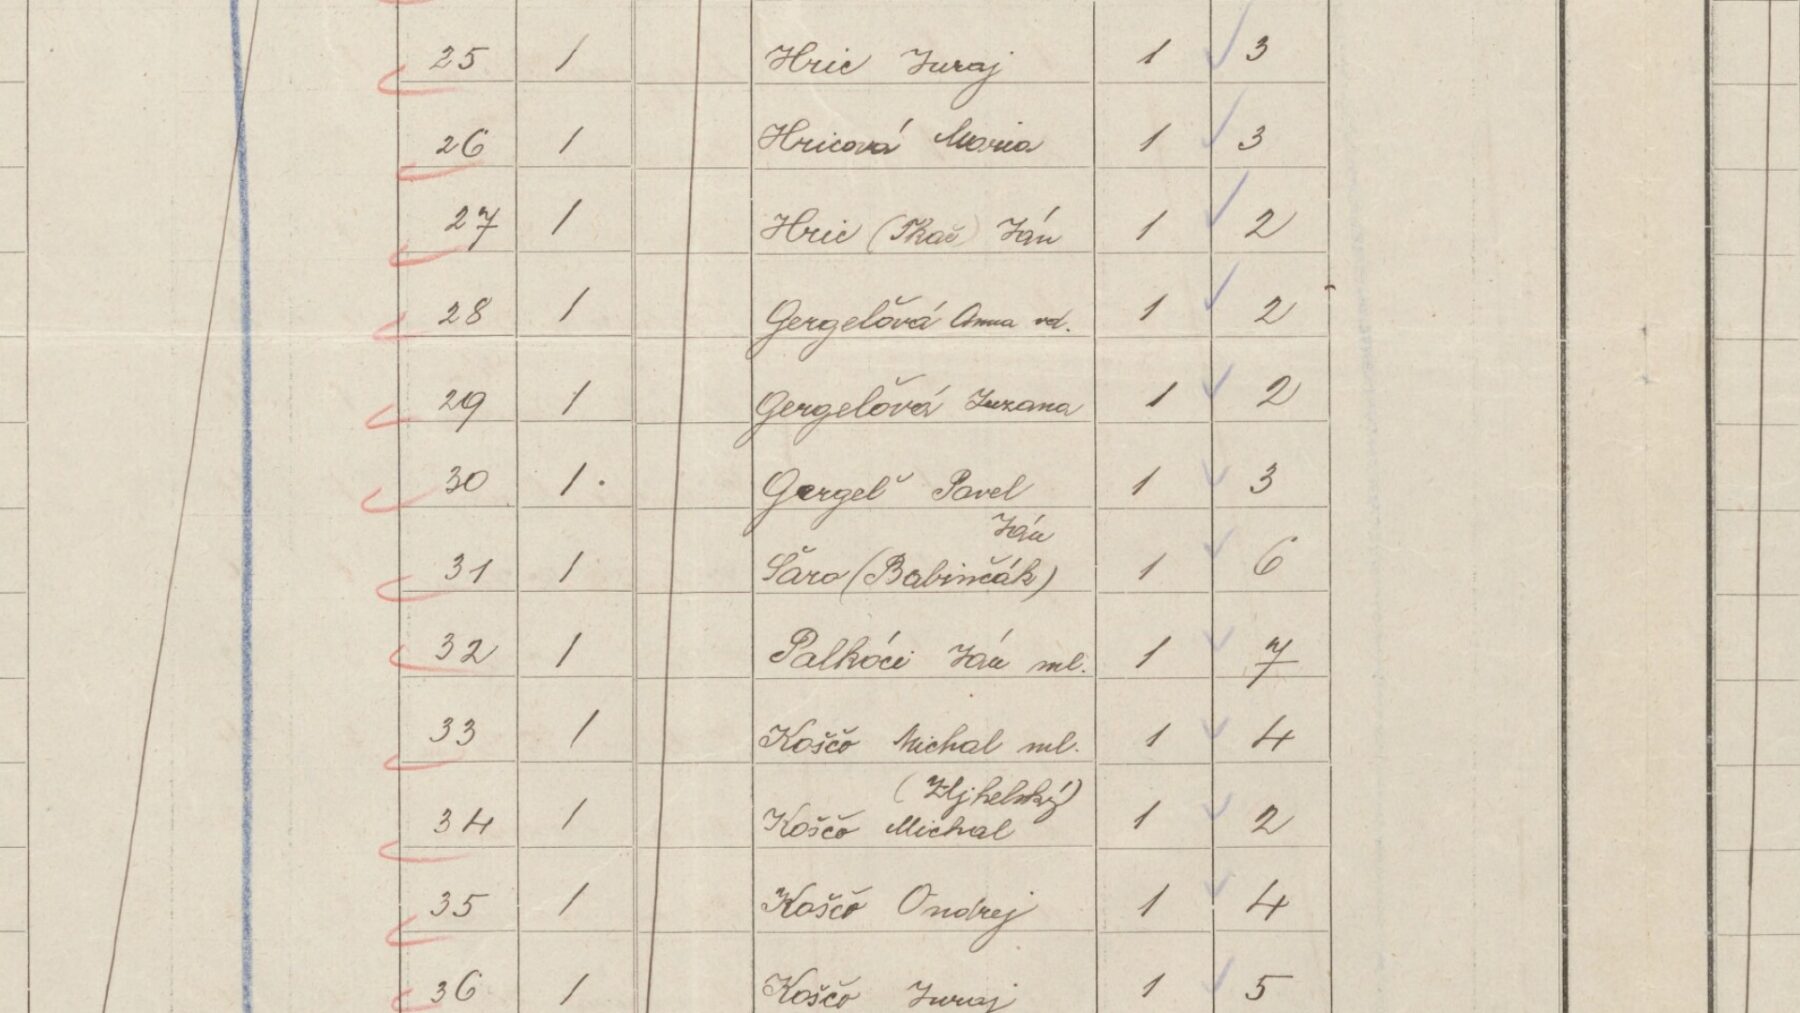 25 1 Hric Juraj 1 3
26 1 Hricová Maria 1 3
27 1 Hric (Tkač) Ján 1 2
28 1 Gergeľová Anna vd. 1 2
29 1 Gergeľová Zuzana 1 2
30 1. Gergeľ Pavel 1 3
Ján
31 1 Šaro (Babinčák) 1 6
32 1 Palkóci Ján ml. 1 7
33 1 Koščo Michal ml. 1 4
(Ujhelský)
34 1 Koščo Michal 1 2
35 1 Koščo Ondrej 1 4
36 1 Koščo Juraj 1 5